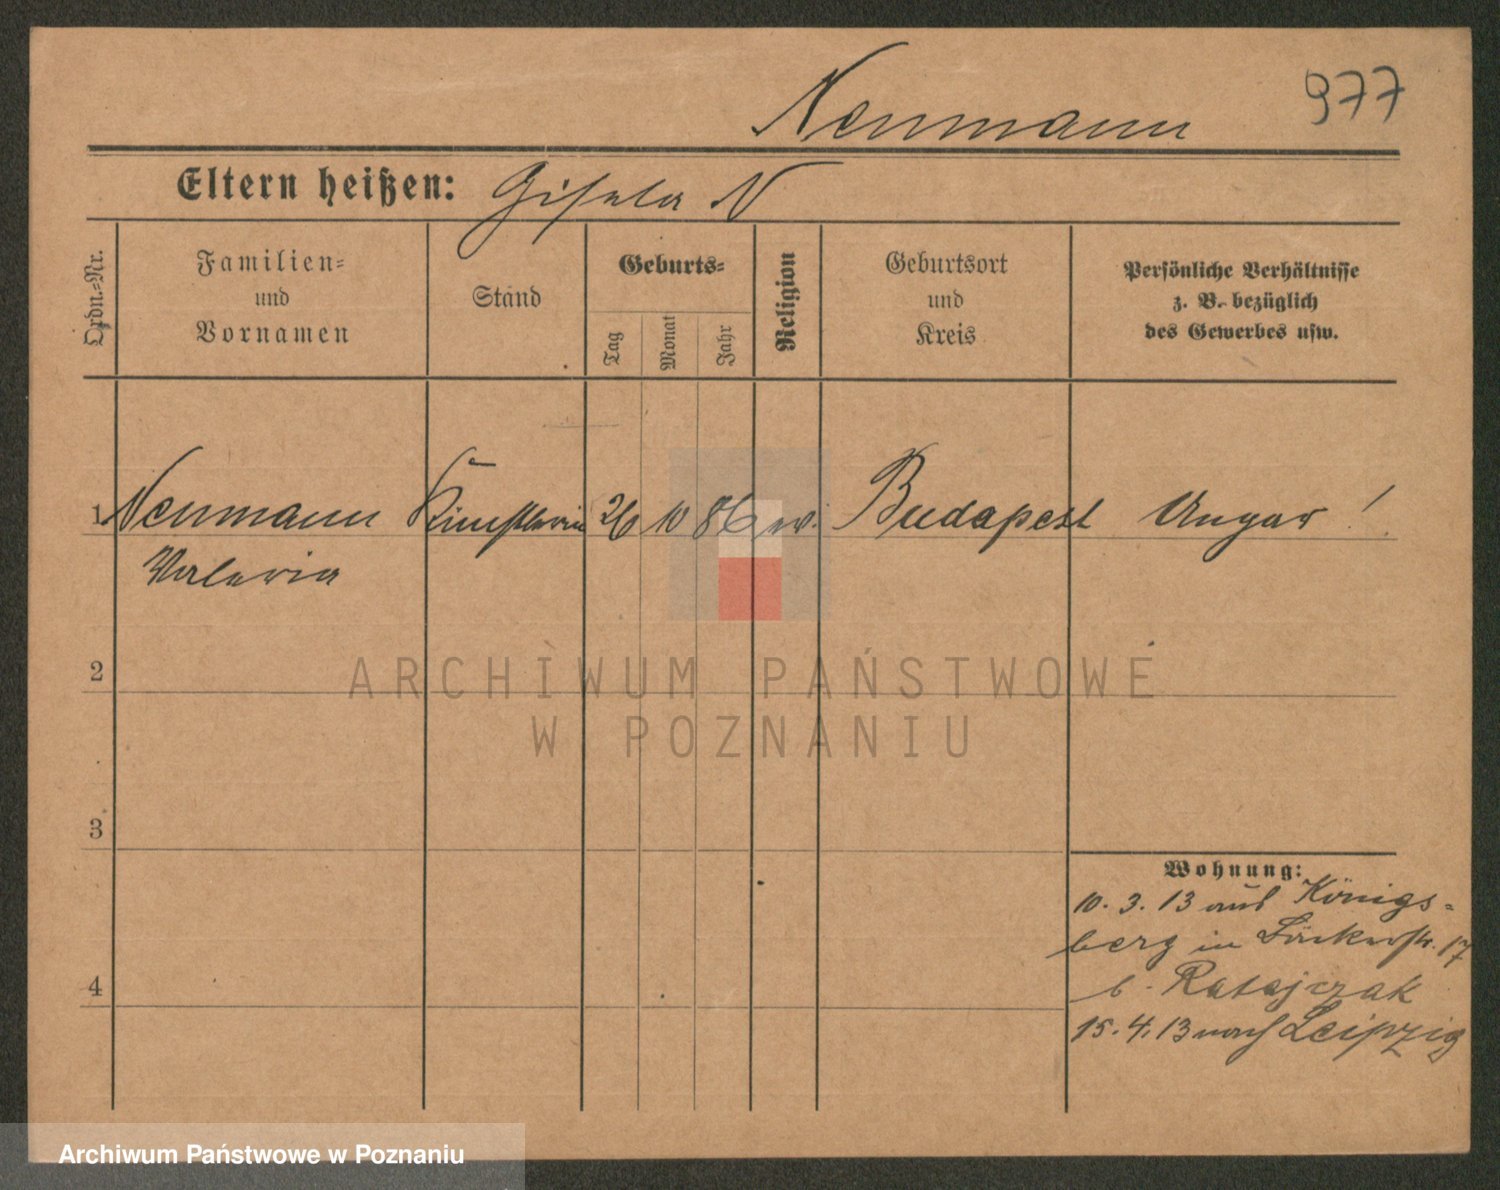 Neumann 977
Eltern heißen: Gisela N
Ordn.-Nr.
Familien-
und
Vornamen
Stand
Geburts-
Tag
Monat
Jahr
Religion
Geburtsort
und
Kreis
Persönliche Verhältnisse
z. B. bezüglich
des Gewerbes usw.
1 Neumann Künstlerin 26 10 86 Budapest Ungar !
Valeria
2
ARCHIWUM PAŃSTWOWE
W POZNANIU
3
Wohnung:
10. 3. 13 aus Königs-
berg in 17
4
b. Ratajczak
15. 4. 13 nach Leipzig
Archiwum Państwowe w Poznaniu